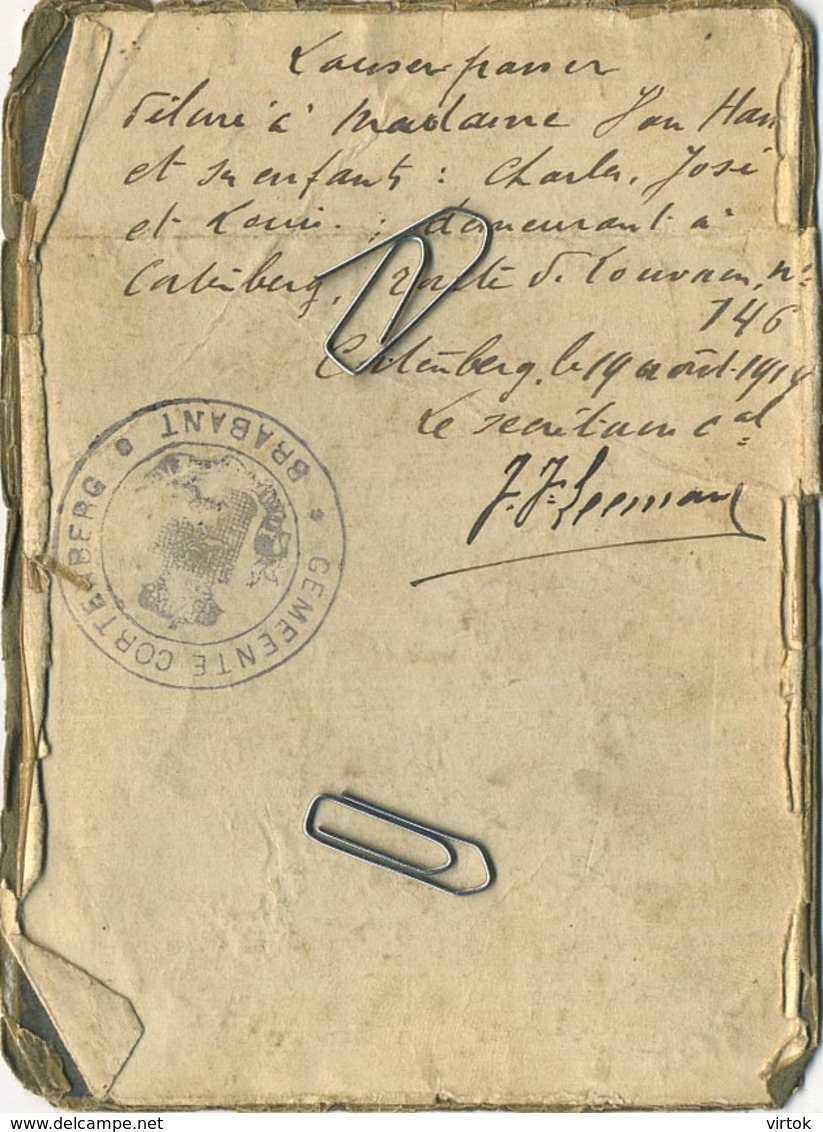 Laisser passer
délivré à Madame Van Ham
et ses enfants : Charles, José
et Louis. ; demeurant à
Cortenberg, route de Louvain, n°
146
Cortenberg, le 19 août 1914
Le secrétaire cal
J. J. Leemans
GEMEENTE CORTENBERG * BRABANT *
virtok